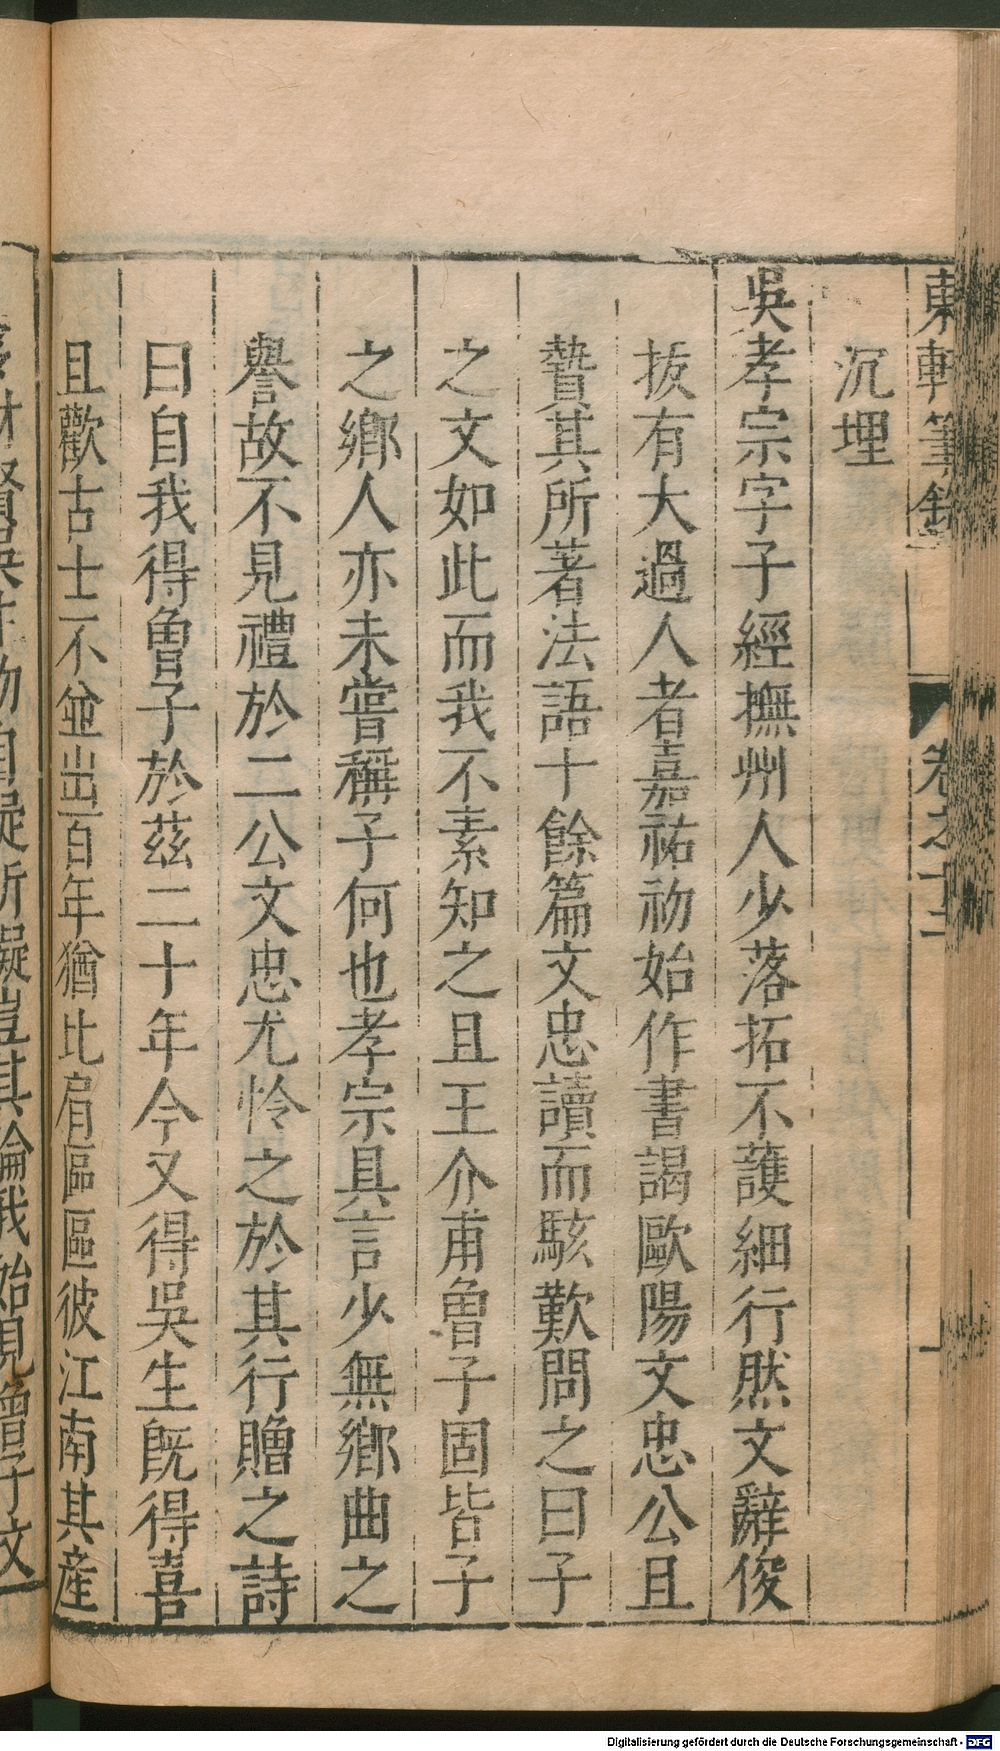 東軒筆錄 卷之十二 一
沉埋
吳孝宗字子經撫州人少落拓不護細行然文辭俊
拔有大過人者嘉祐初始作書謁歐陽文忠公且
贄其所著法語十餘篇文忠讀而駭歎問之曰子
之文如此而我不素知之且王介甫曾子固皆子
之鄉人亦未嘗稱子何也孝宗具言少無鄉曲之
譽故不見禮於二公文忠尤怜之於其行贈之詩
曰自我得曾子於茲二十年今又得吳生旣得喜
且歡古士不並出百年猶比肩區區彼江南其産
物自疑所擬豈其論我始見曾子文
Digitalisierung gefördert durch die Deutsche Forschungsgemeinschaft - DFG